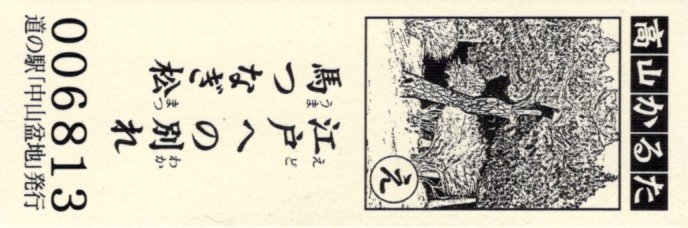 高山かるた
え
江戸への別れ
えど わか
馬つなぎ松
うま まつ
006813
道の駅「中山盆地」発行